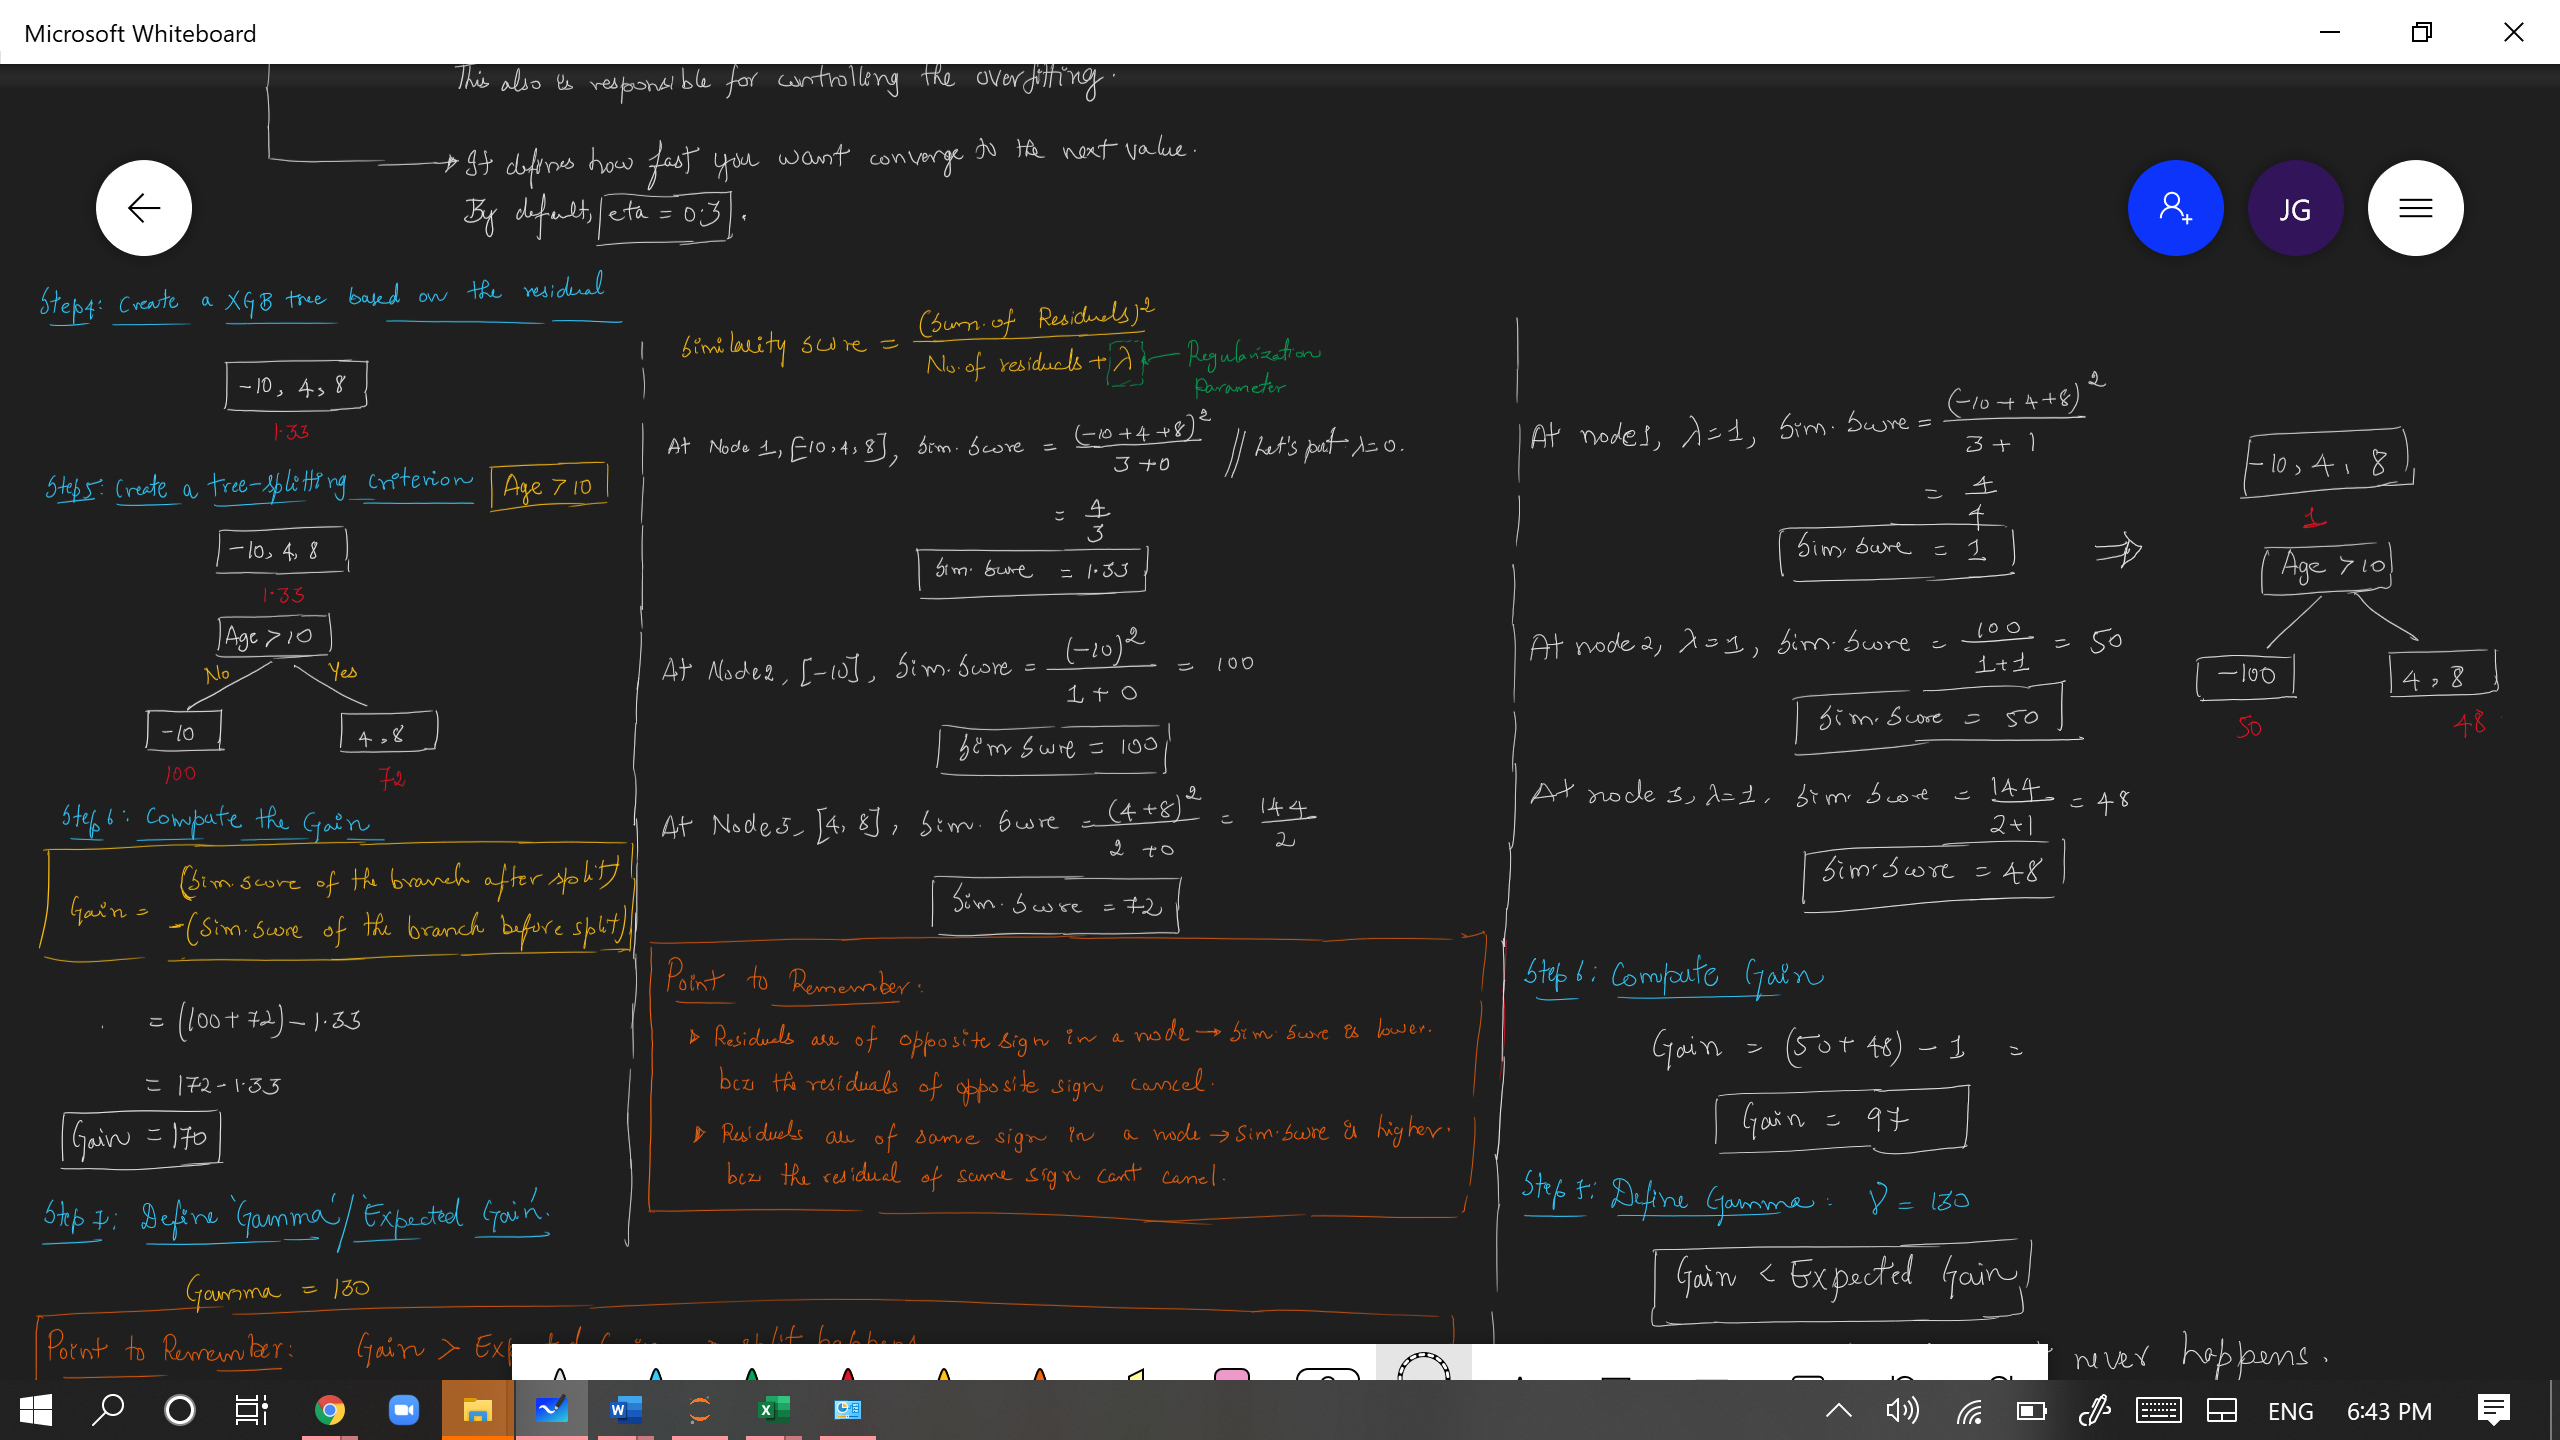 Microsoft Whiteboard
This also is responsible for controlling the overfitting.
It defines how fast you want converge to the next value.
By default, eta = 0.3.
JG
Step4: Create a XGB tree based on the residual
-10, 4, 8
1.33
Step5: Create a tree-splitting criterion Age > 10
-10, 4, 8
1.33
Age > 10
No Yes
-10 4, 8
100 72
Step 6: Compute the Gain
Gain = (Sim. score of the branch after split)
-(Sim. score of the branch before split)
= (100 + 72) - 1.33
= 172 - 1.33
Gain = 170
Step 7: Define 'Gamma' / 'Expected Gain'.
Gamma = 130
Point to Remember: Gain > split happens
Similarity Score = (Sum. of Residuals)²
No. of residuals + λ
Regularization
Parameter
At Node 1, [-10, 4, 8], Sim. Score = (-10 + 4 + 8)² // Let's put λ = 0.
3 + 0
= 4
3
Sim. Score = 1.33
At Node 2, [-10], Sim. Score = (-10)² = 100
1 + 0
Sim Score = 100
At Node 3, [4, 8], Sim. Score = (4 + 8)² = 144
2 + 0 2
Sim. Score = 72
Point to Remember:
Residuals are of opposite sign in a node → Sim. Score is lower.
bcz the residuals of opposite sign cancel.
Residuals are of same sign in a node → Sim. Score is higher.
bcz the residual of same sign cant cancel.
At node 1, λ = 1, Sim. Score = (-10 + 4 + 8)²
3 + 1
= 4
4
Sim. Score = 1 ⇒
At node 2, λ = 1, Sim. Score = 100 = 50
1 + 1
Sim. Score = 50
At node 3, λ = 1, Sim. Score = 144 = 48
2 + 1
Sim. Score = 48
-10, 4, 8
1
Age > 10
-100 4, 8
50 48
Step 6: Compute Gain
Gain = (50 + 48) - 1 =
Gain = 97
Step 7: Define Gamma: γ = 130
Gain < Expected Gain
never happens.
ENG 6:43 PM